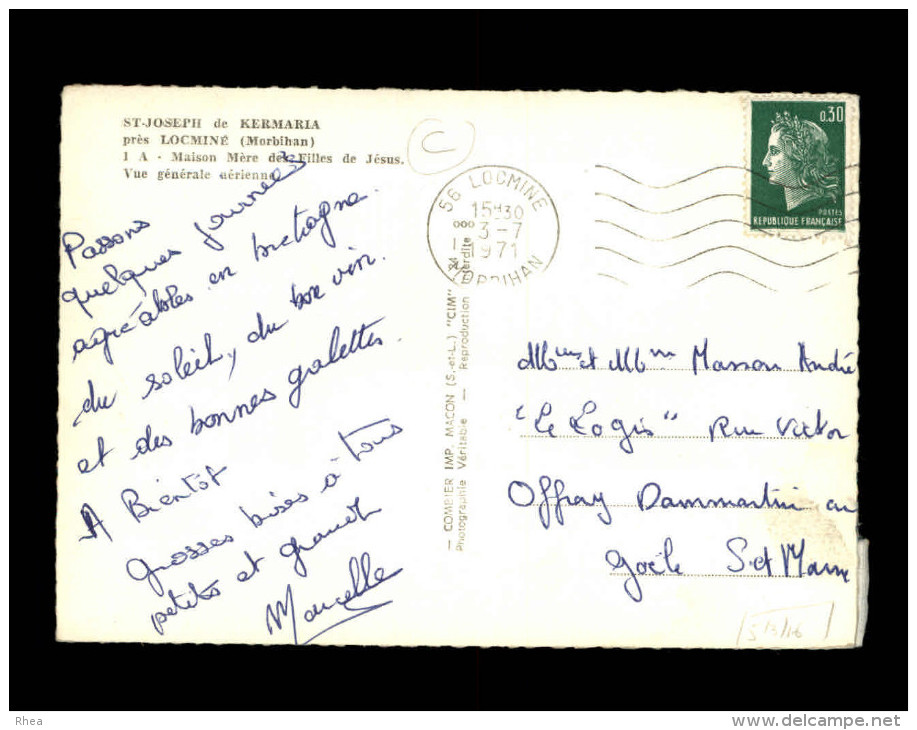 ST-JOSEPH de KERMARIA
près LOCMINÉ (Morbihan)
1 A - Maison Mère des Filles de Jésus.
Vue générale aérienne
C
Passons
quelques journées
agréables en bretagne.
du soleil, du bon vin.
et des bonnes galettes.
A Bientôt
grosses bises à tous
petits et grands
Marcelle
— COMBIER IMP. MACON (S.-et-L.) "CIM"
Photographie Véritable — Reproduction interdite
56 LOCMINE
15H30
3-7
1971
MORBIHAN
0,30
POSTES
REPUBLIQUE FRANÇAISE
et Masson André
"Le Logis" Rue Victor
Offray Dammartin en
Goële S.et Marne
Rhea
www.delcampe.net